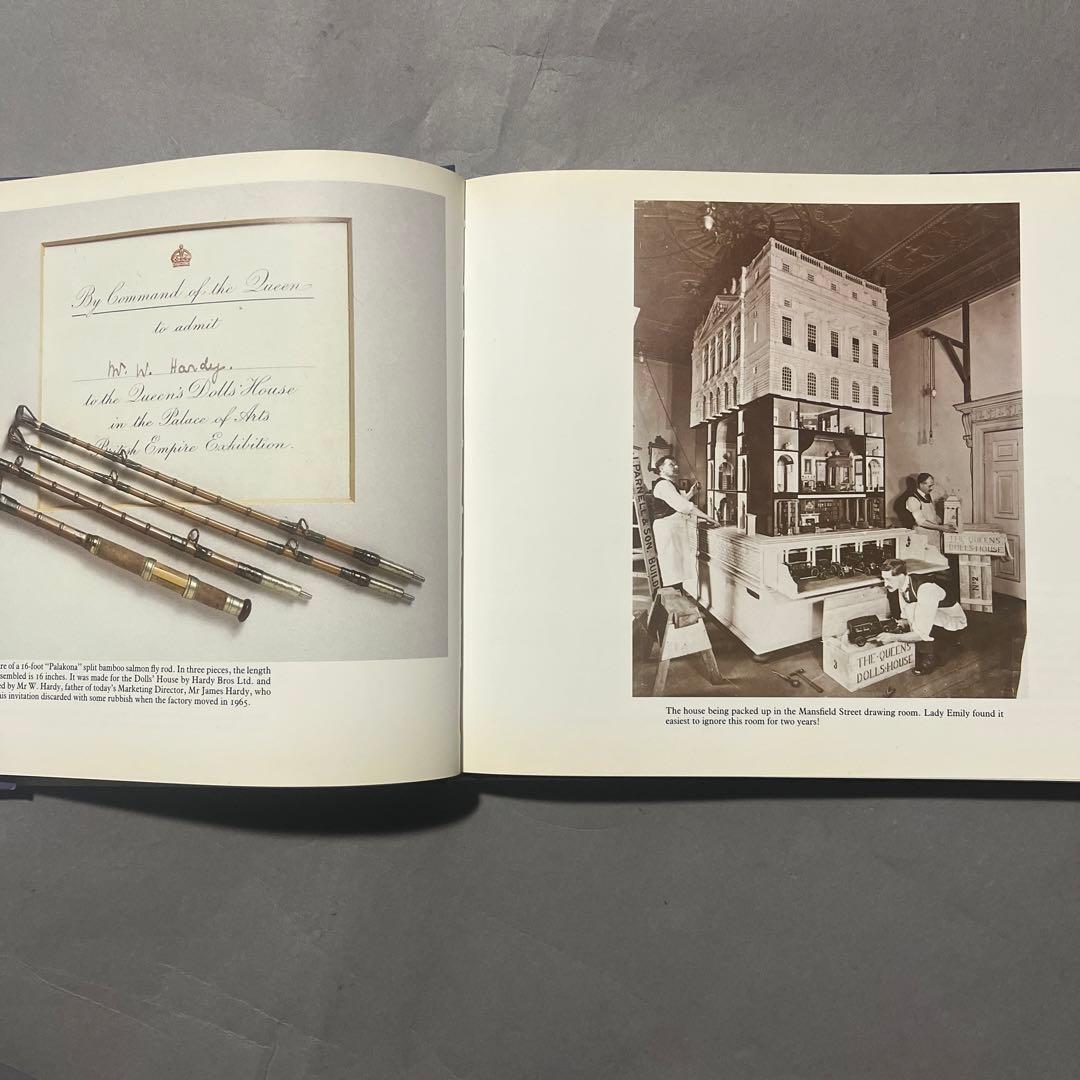 By Command of the Queen
to admit
Mr. W. Hardy.
to the Queen's Dolls' House
in the Palace of Arts
British Empire Exhibition.
re of a 16-foot "Palakona" split bamboo salmon fly rod. In three pieces, the length
sembled is 16 inches. It was made for the Dolls' House by Hardy Bros Ltd. and
ed by Mr W. Hardy, father of today's Marketing Director, Mr James Hardy, who
his invitation discarded with some rubbish when the factory moved in 1965.
PARNELL & SON. BUILD
THE QUEEN'S
DOLLS-HOUSE
Nº2
3
THE·QUEEN'S
DOLLS·HOUSE
The house being packed up in the Mansfield Street drawing room. Lady Emily found it
easiest to ignore this room for two years!